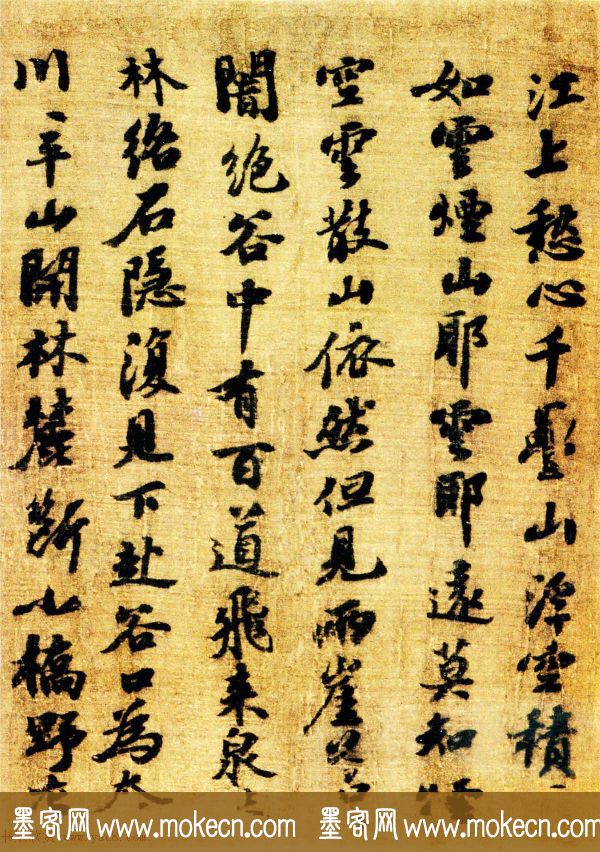 江上愁心千疊山浮空積
如雲煙山耶雲耶遠莫知煙
空雲散山依然但見兩崖蒼
闇絶谷中有百道飛来泉
林絡石隱復見下赴谷口為奔
川平山開林麓斷小橋野
墨客网 www.mokecn.com 墨客网 www.mokecn.com